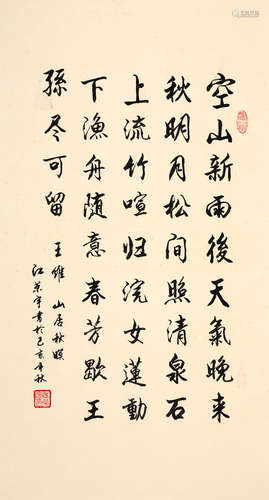 空山新雨後天氣晚来
秋明月松间照清泉石
上流竹喧归浣女蓮動
下漁舟随意春芳歇王
孫尽可留
王維 山居秋暝
江 書於己亥年秋